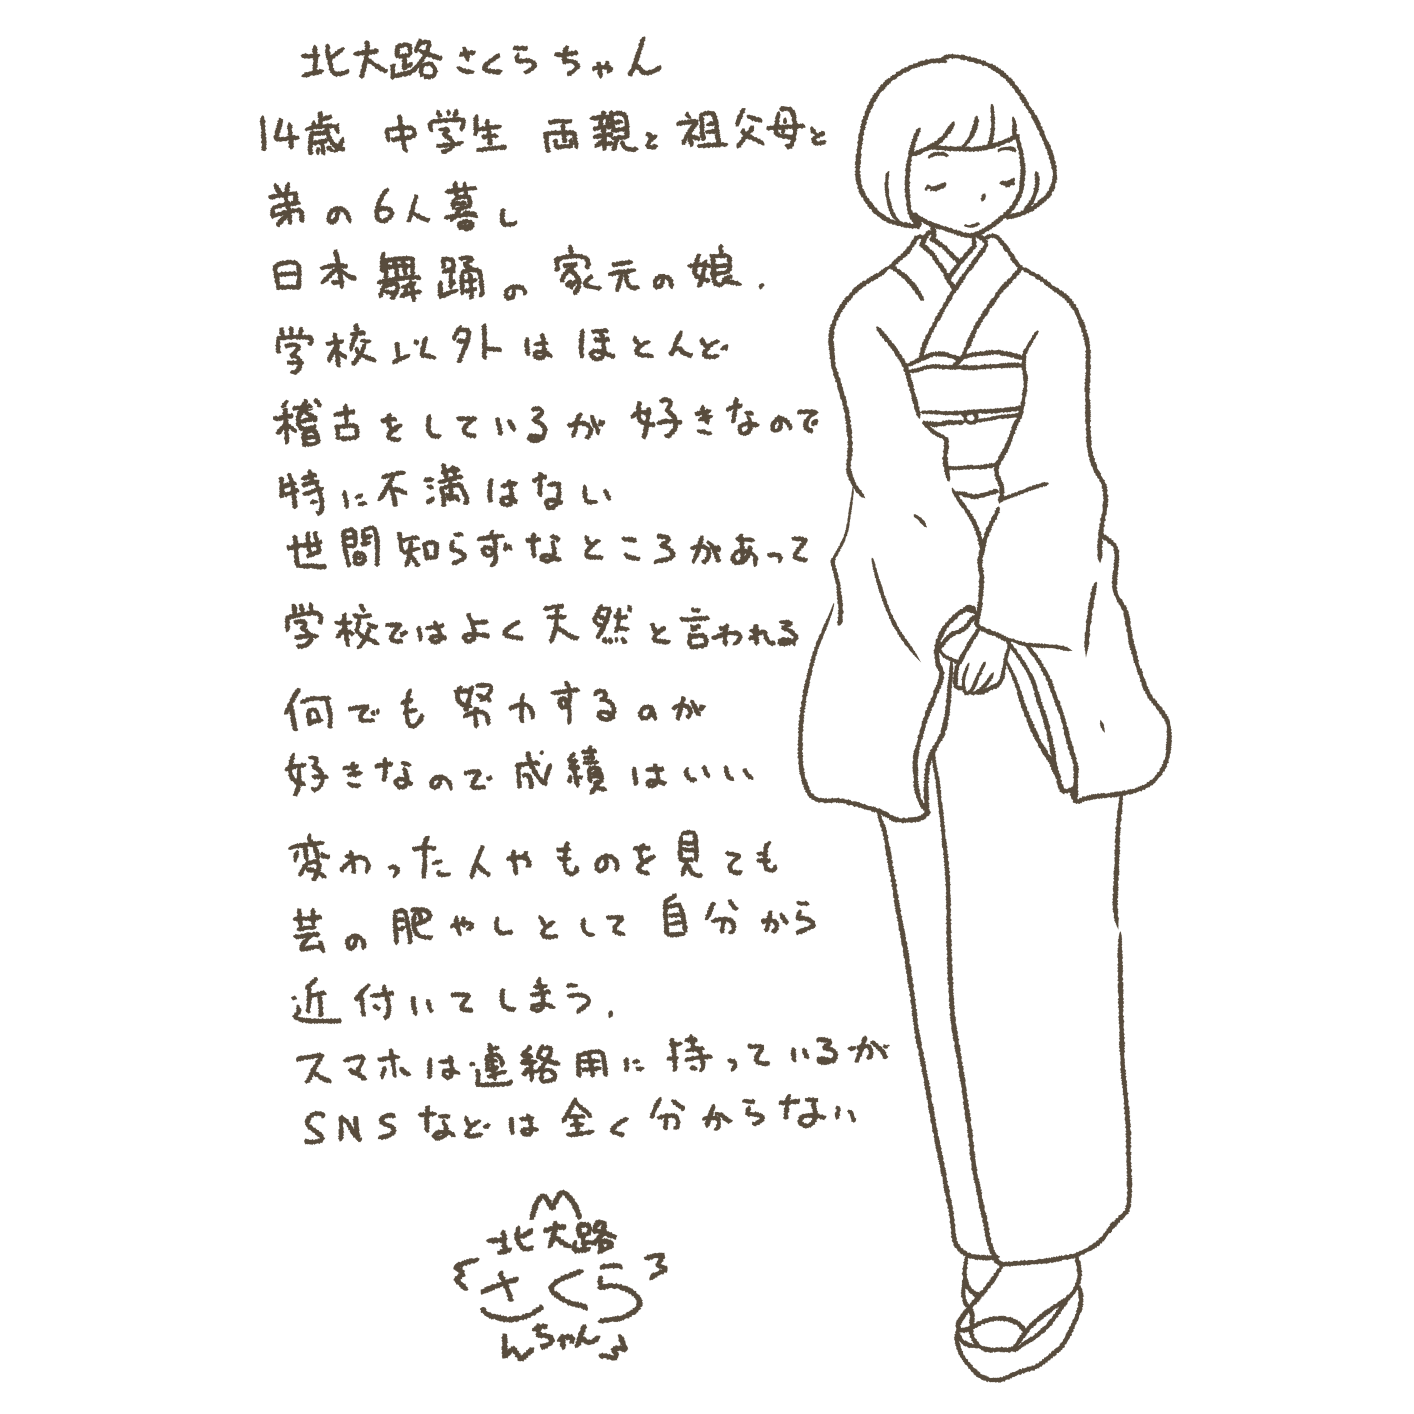 北大路さくらちゃん
14歳 中学生 両親と祖父母と
弟の6人暮し
日本舞踊の家元の娘.
学校以外はほとんど
稽古をしているが好きなので
特に不満はない
世間知らずなところがあって
学校ではよく天然と言われる
何でも努力するのが
好きなので成績はいい
変わった人やものを見ても
芸の肥やしとして自分から
近付いてしまう.
スマホは連絡用に持っているが
SNSなどは全く分からない
北大路
さくら
ちゃん